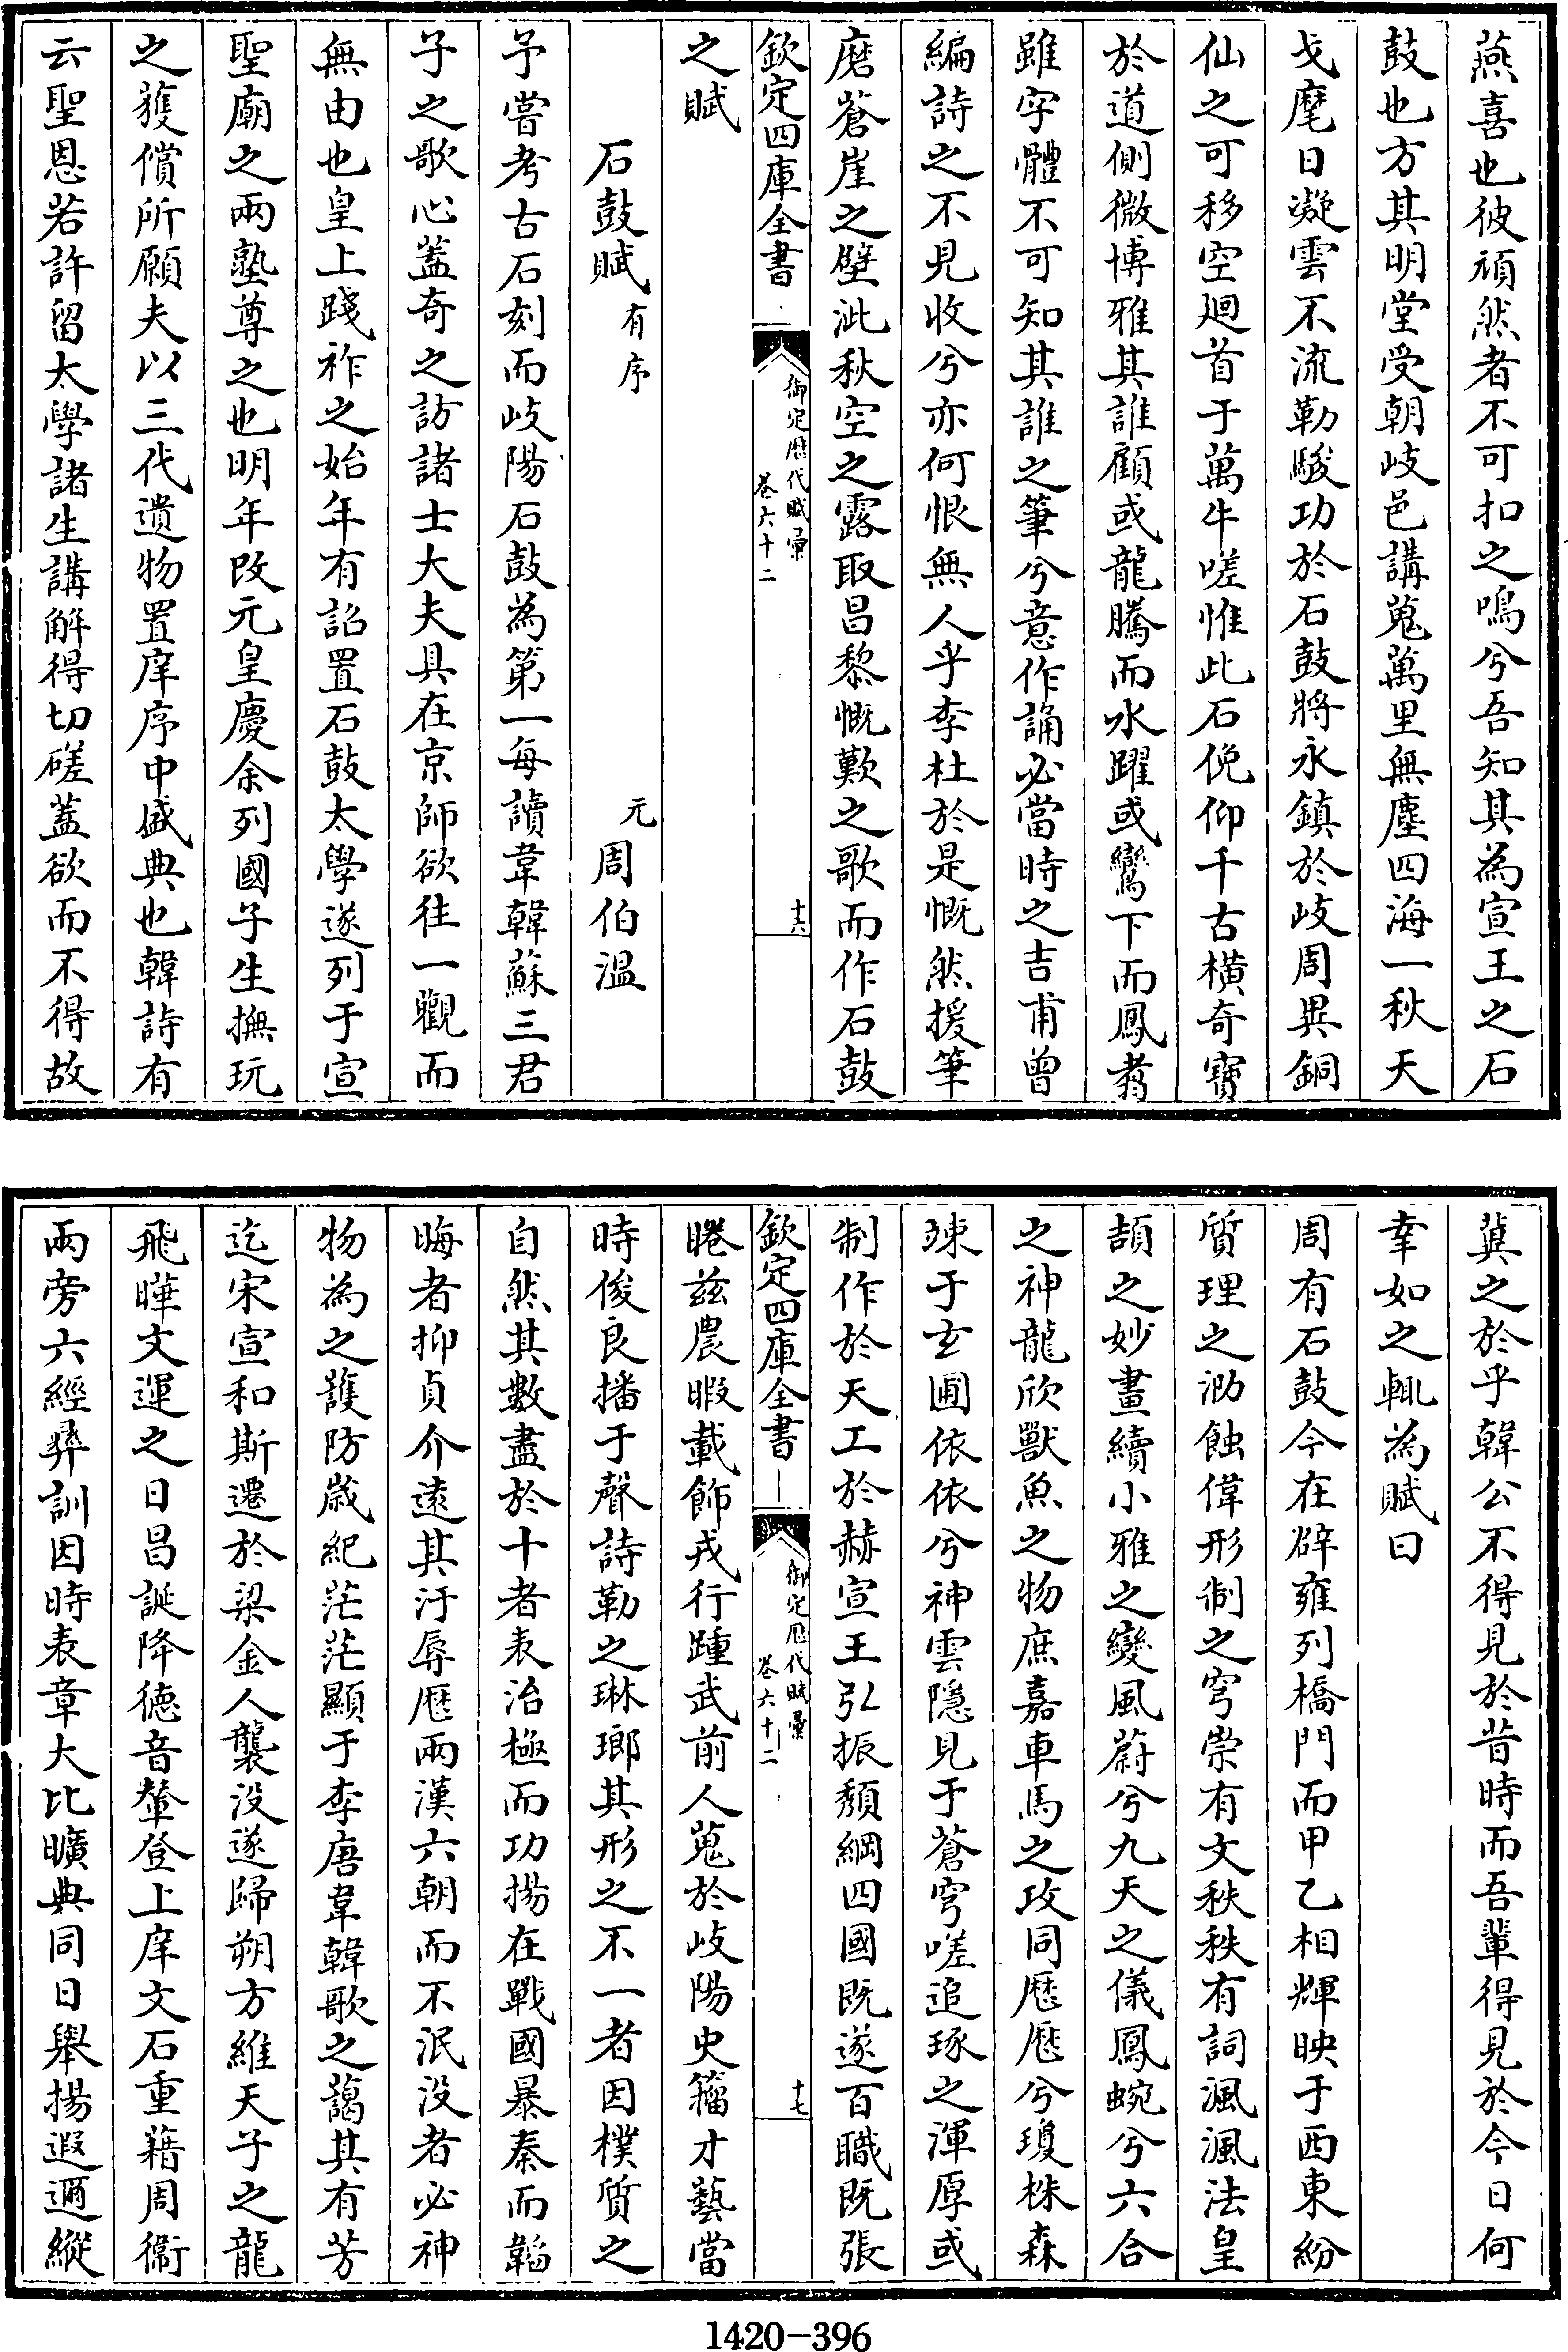 燕喜也彼頑然者不可扣之鳴兮吾知其為宣王之石
鼓也方其明堂受朝岐邑講蒐萬里無塵四海一秋天
戈麾日凝雲不流勒駿功於石鼓將永鎮於岐周異銅
仙之可移空廻首于萬牛嗟惟此石俛仰千古橫奇寶
於道側微博雅其誰顧或龍騰而水躍或鸞下而鳳翥
雖字體不可知其誰之筆兮意作誦必當時之吉甫曾
編詩之不見收兮亦何恨無人乎李杜於是慨然援筆
磨蒼崖之壁泚秋空之露取昌黎慨歎之歌而作石鼓
欽定四庫全書 御定歷代賦彙 卷六十二 十六
之賦
石鼓賦 有序 元 周伯溫
予嘗考古石刻而岐陽石鼓為第一每讀韋韓蘇三君
子之歌心蓋奇之訪諸士大夫具在京師欲往一觀而
無由也皇上踐祚之始年有詔置石鼓太學遂列于宣
聖廟之兩塾尊之也明年改元皇慶余列國子生撫玩
之獲償所願夫以三代遺物置庠序中盛典也韓詩有
云聖恩若許留太學諸生講解得切磋蓋欲而不得故
冀之於乎韓公不得見於昔時而吾輩得見於今日何
幸如之輒為賦曰
周有石鼓今在辟雍列橋門而甲乙相輝映于西東紛
質理之泐蝕偉形制之穹崇有文秩秩有詞渢渢法皇
頡之妙畫續小雅之變風蔚兮九天之儀鳳蜿兮六合
之神龍欣獸魚之物庶嘉車馬之攻同歷歷兮瓊株森
竦于玄圃依依兮神雲隱見于蒼穹嗟追琢之渾厚或
制作於天工於赫宣王弘振頽綱四國既遂百職既張
欽定四庫全書 御定歷代賦彙 卷六十二 十七
睠茲農暇載飾戎行踵武前人蒐於岐陽史籀才藝當
時俊良播于聲詩勒之琳瑯其形之不一者因樸質之
自然其數盡於十者表治極而功揚在戰國暴秦而韜
晦者抑貞介遠其汙辱歷兩漢六朝而不泯没者必神
物為之護防歲紀茫茫顯于李唐韋韓歌之藹其有芳
迄宋宣和斯遷於梁金人襲没遂歸朔方維天子之龍
飛曄文運之日昌誕降德音輦登上庠文石重藉周衞
兩旁六經彛訓因時表章大比曠典同日舉揚遐邇縱
1420-396